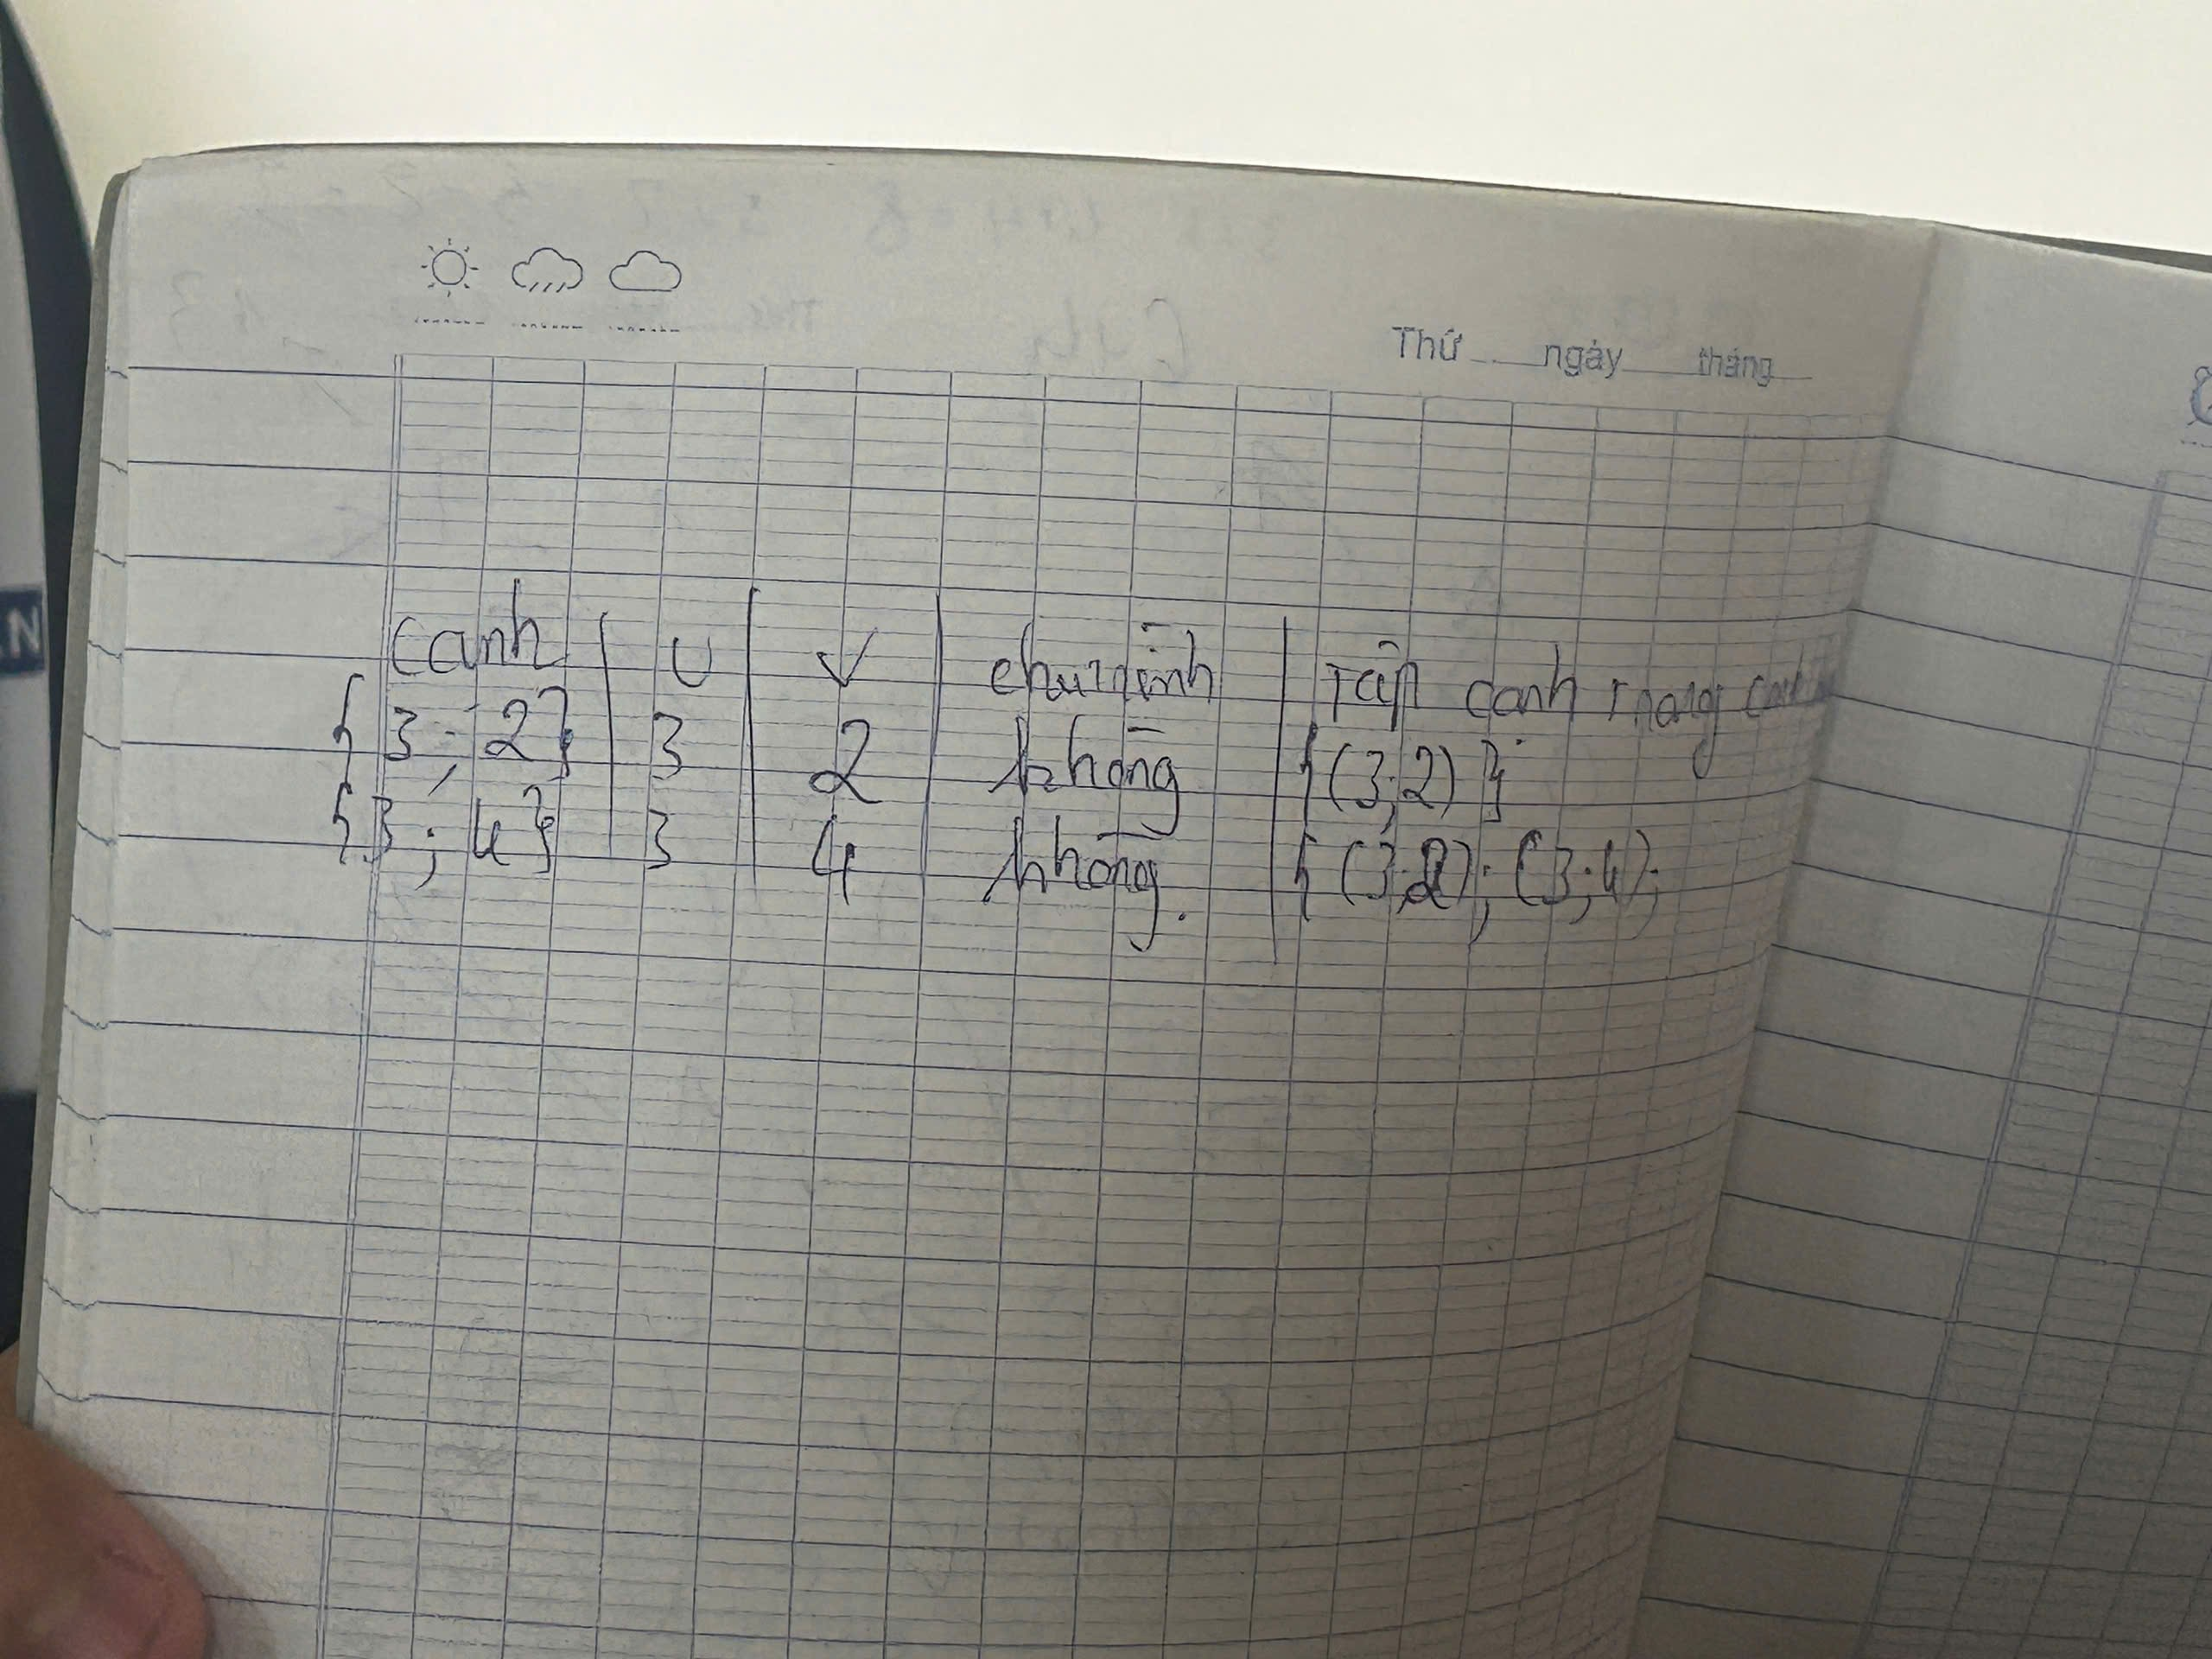 Thứ ngày tháng
cạnh | U | V | chu trình | Tập cạnh trong
{3; 2} | 3 | 2 | không | {(3;2)}
{3; 4} | 3 | 4 | không. | {(3;2); (3;4);
AN